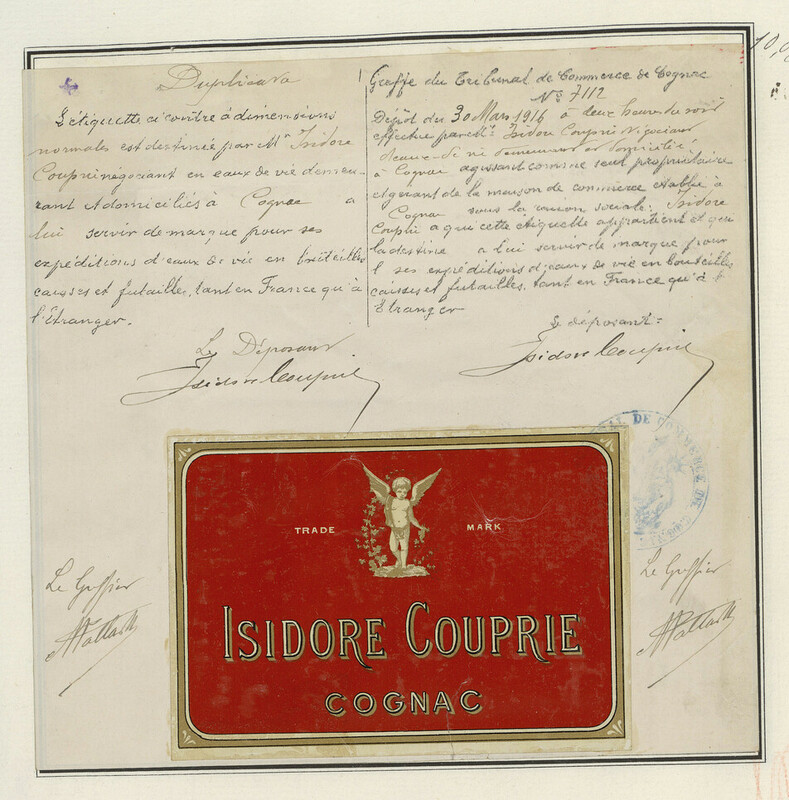 Duplicata
L'étiquette ci contre à dimensions
normales est destinée par Mr Isidore
Couprie négociant en eaux de vie demeu-
rant et domiciliés à Cognac a
lui servir de marque pour ses
expéditions d'eaux de vie en bouteilles
caisses et futailles, tant en France qu'à
l'Étranger.
Le Déposant
Isidore Couprie
Greffe du Tribunal de Commerce de Cognac
No 7112
Dépôt du 30 Mars 1916 à deux heures du soir
effectué par Mr Isidore Couprie Négociant
d'eaux-de vie demeurant et domicilié
à Cognac agissant comme seul propriétaire
et gérant de la maison de commerce établie à
Cognac sous la raison sociale: Isidore
Couprie a qui cette étiquette appartient et qui
la destine a lui servir de marque pour
ses expéditions d'eaux de vie en bouteilles
caisses et futailles, tant en France qu'à l'
Etranger
Le déposant:
Isidore Couprie
DE COMMERCE DE
Le Greffier
Le Greffier
TRADE MARK
ISIDORE COUPRIE
COGNAC